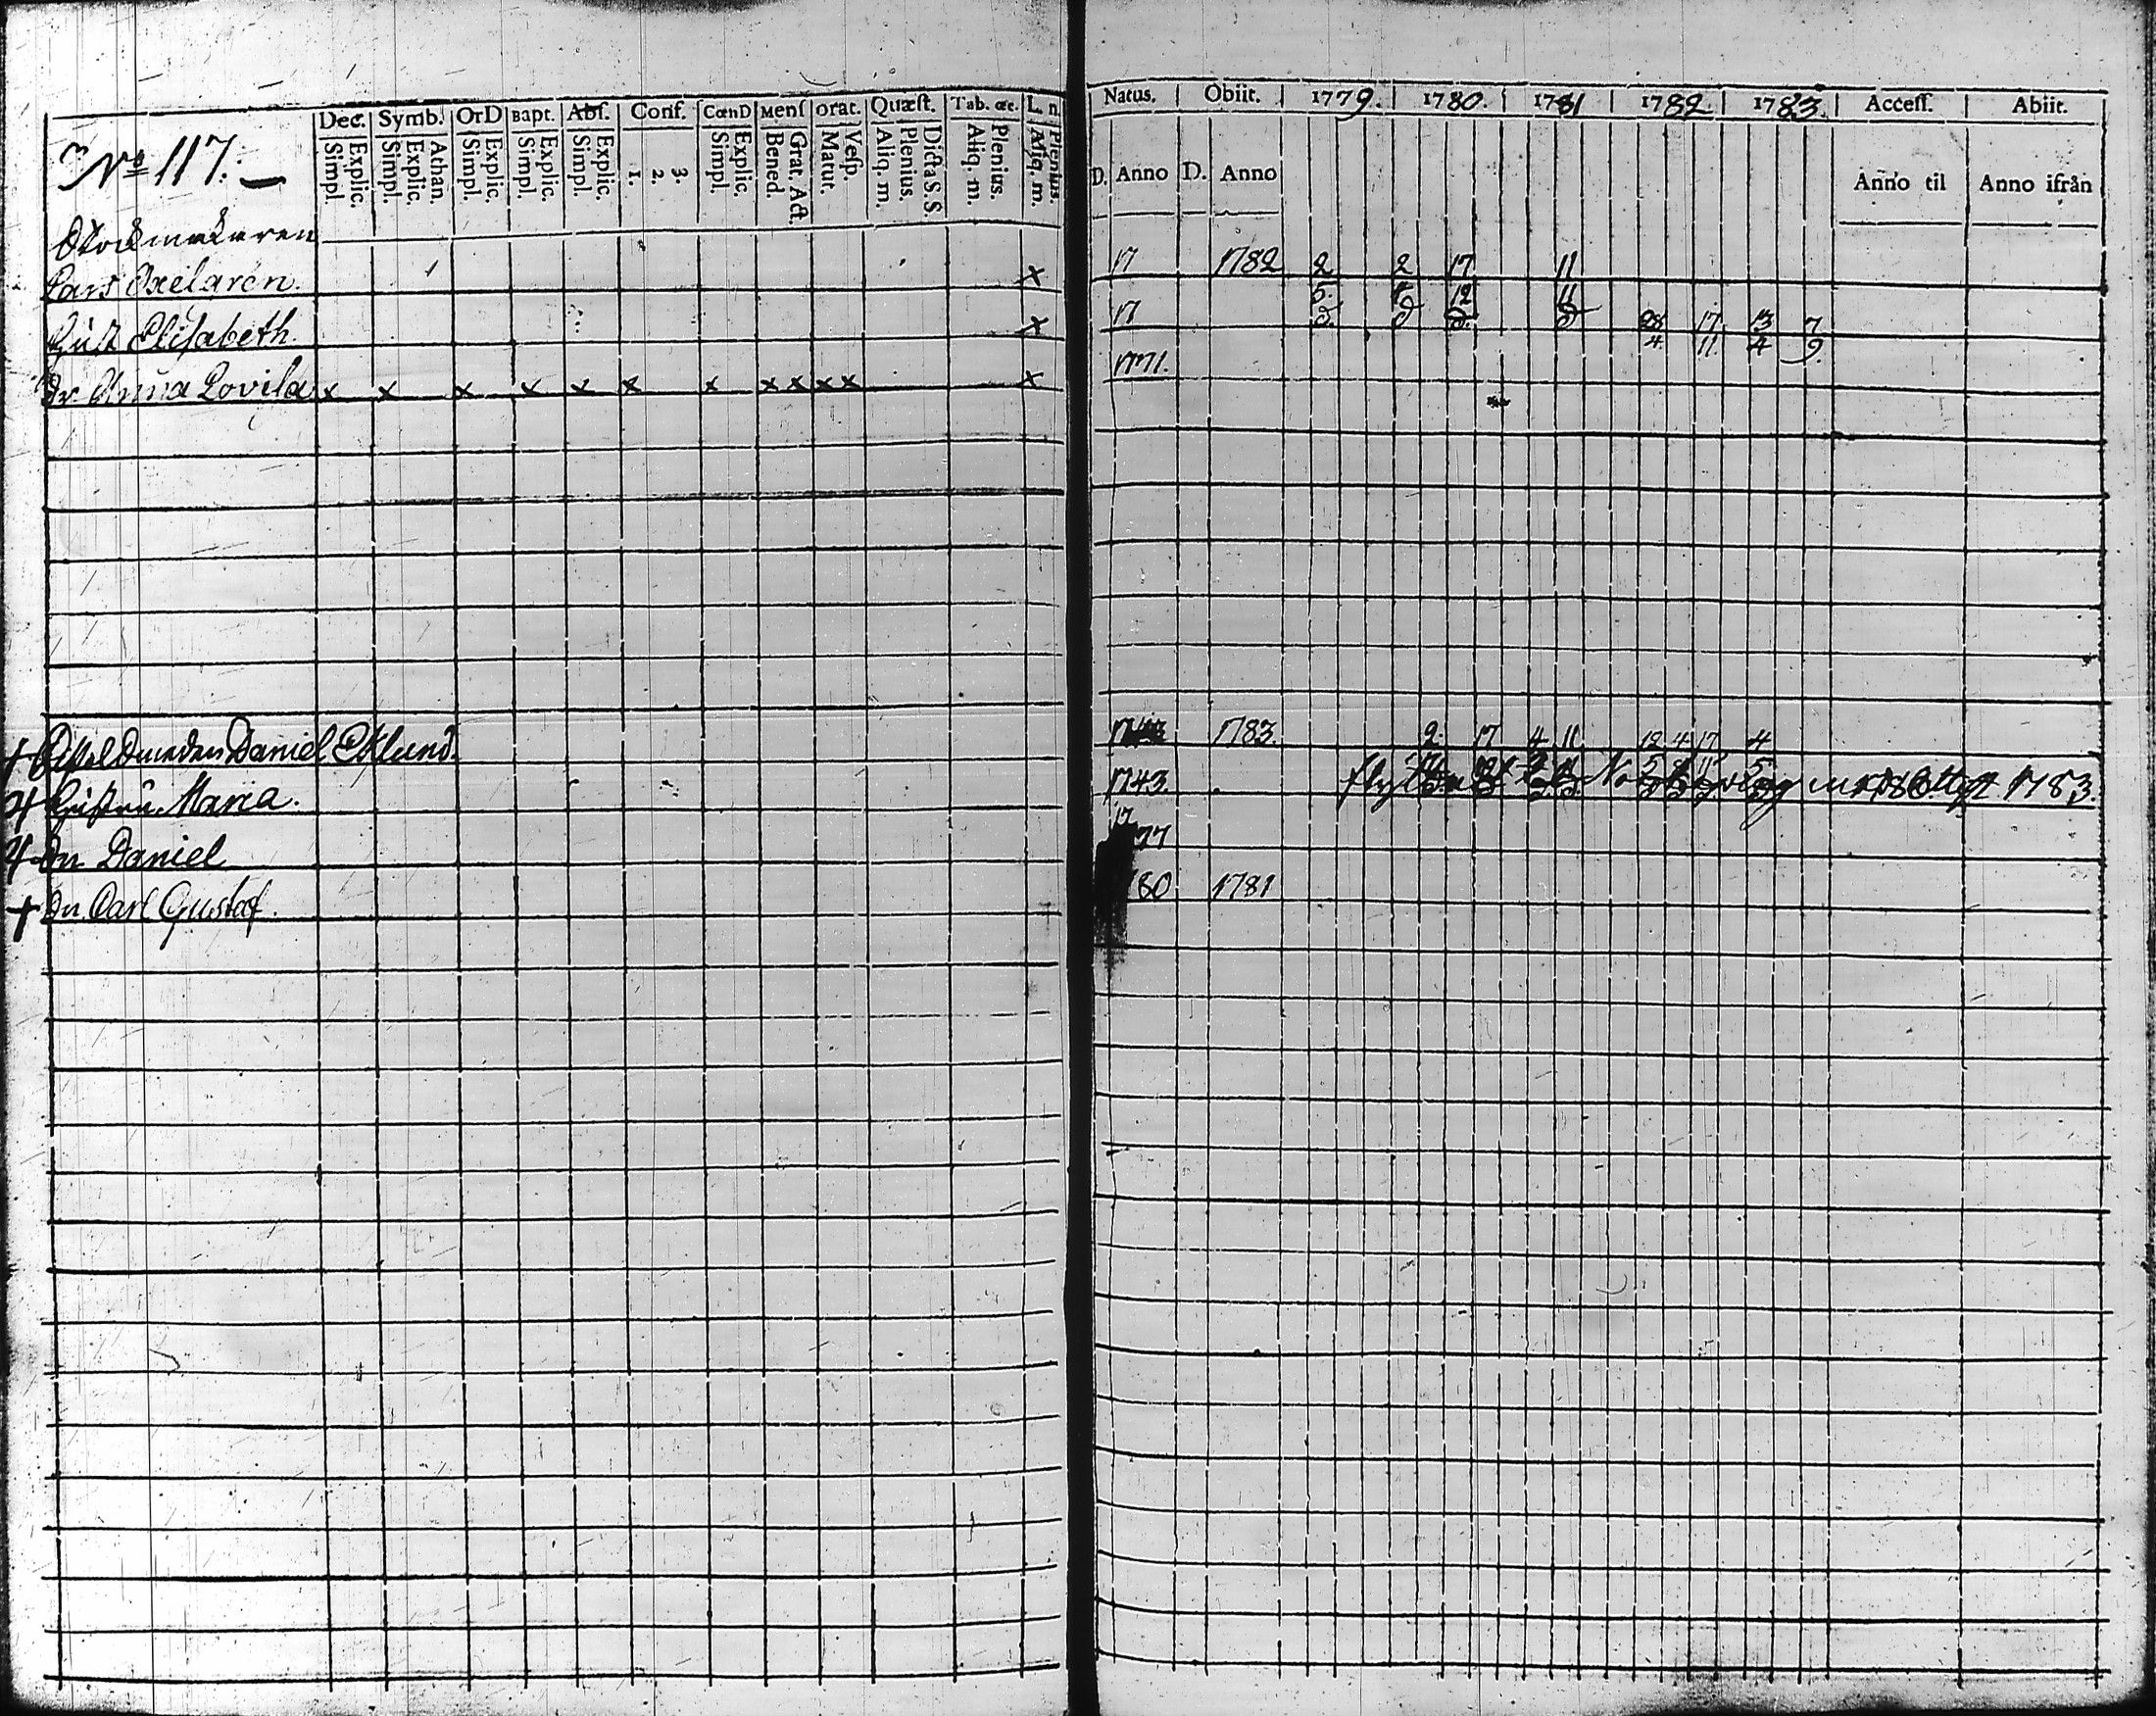 Dec. Symb. OrD Bapt. Abs. Conf. CœnD Mens Orat. Quæst. Tab. &c. L. n
Simpl. Explic. Simpl. Explic. Athan. Simpl. Explic. Simpl. Explic. Simpl. Explic. 1. 2. 3. Simpl. Explic. Bened. Grat. Act. Matut. Vesp. Aliq. m. Plenius. Dicta S. S. Aliq. m. Plenius. Aliq. m. Plenius.
Natus. Obiit. 1779. 1780. 1781 1782. 1783. Access. Abiit.
D. Anno D. Anno Anno til Anno ifrån
No 117.
Stockmakaren
Lars Oxelgren. x 17 1782 2 2 17 11
Hust Elisabeth. x 17
5. 12 11
28 17 13 7
Dr Anna Lovisa x x x x x x x x x x x x 1771. 4. 11. 4 9.
Daniel Eklund. 1783. 2. 17 4 11 12 4 17 4
Hustru Maria. 1743. 1783.
Sn Daniel 77
Sn Carl Gustaf. 80 1781